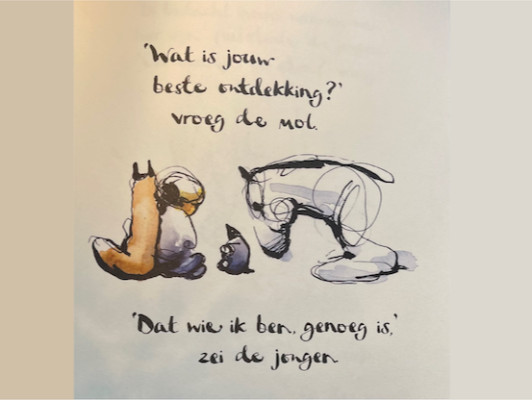 'Wat is jouw
beste ontdekking?'
vroeg de mol.
'Dat wie ik ben, genoeg is,'
zei de jongen.